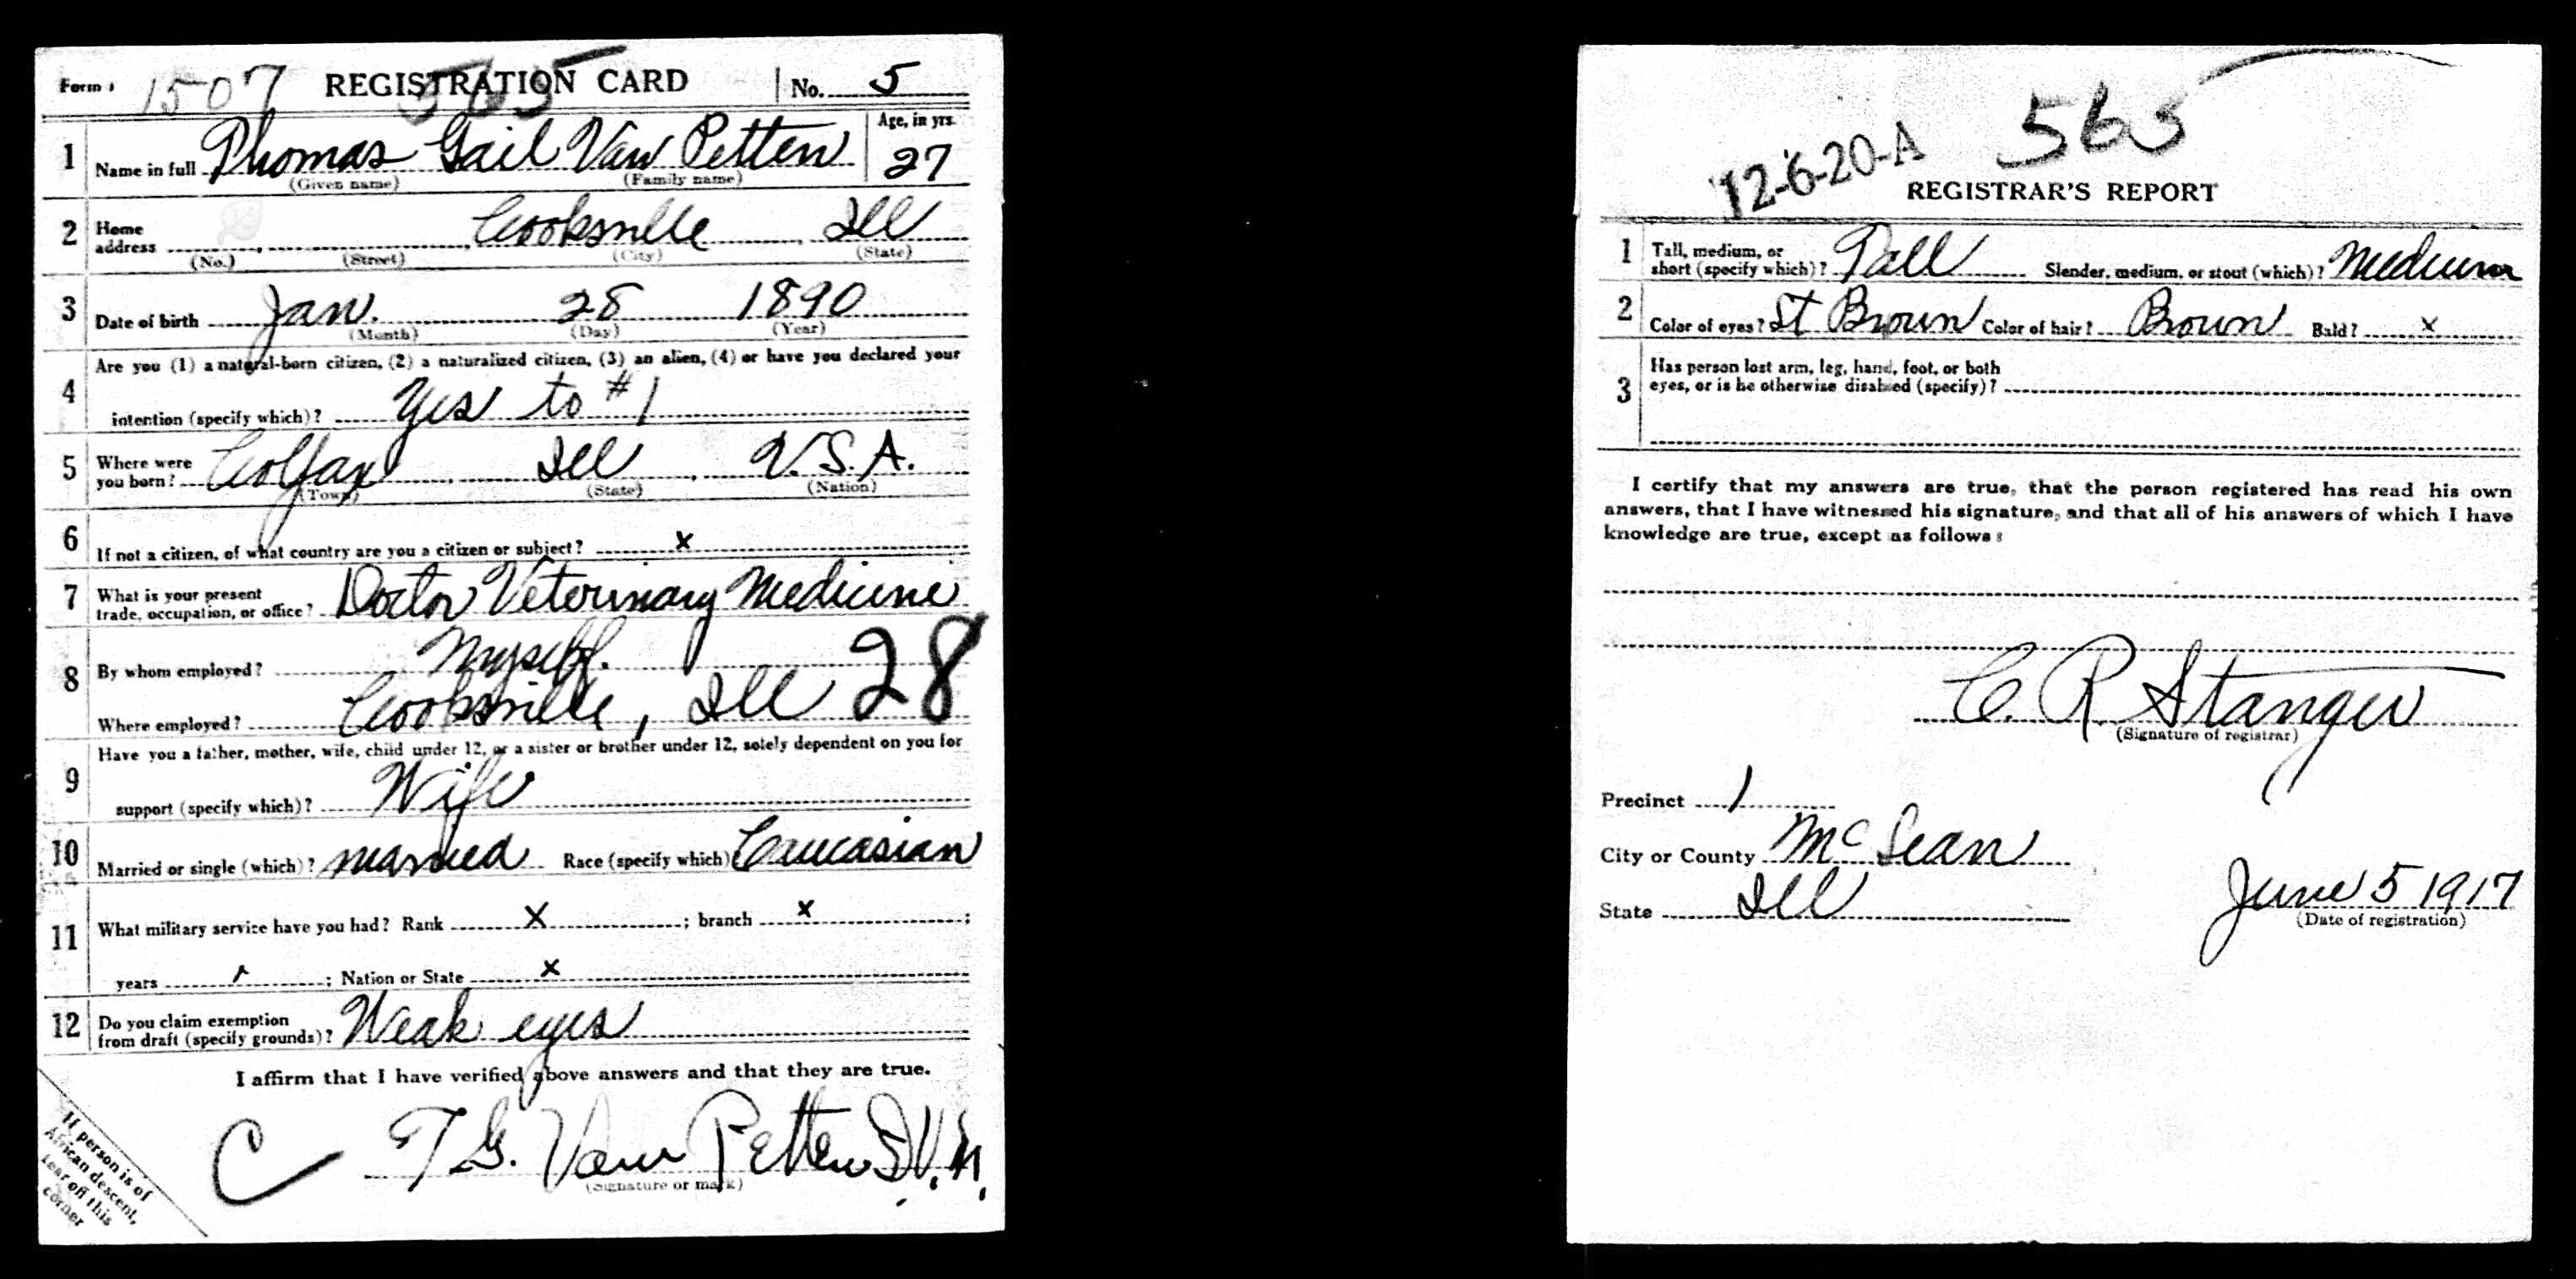 Form 1 1507 REGISTRATION CARD No. 5
565
1 Name in full Thomas Gail Van Petten Age, in yrs. 27
(Given name) (Family name)
2 Home address Cooksville Ill
(No.) (Street) (City) (State)
3 Date of birth Jan. 28 1890
(Month) (Day) (Year)
4 Are you (1) a natural-born citizen, (2) a naturalized citizen, (3) an alien, (4) or have you declared your
intention (specify which)? Yes to #1
5 Where were you born? Colfax, Ill, U.S.A.
(Town) (State) (Nation)
6 If not a citizen, of what country are you a citizen or subject? x
7 What is your present trade, occupation, or office? Doctor Veterinary Medicine
8 By whom employed? Myself.
Where employed? Cooksville, Ill 28
9 Have you a father, mother, wife, child under 12, or a sister or brother under 12, solely dependent on you for
support (specify which)? Wife
10 Married or single (which)? married Race (specify which)? Caucasian
11 What military service have you had? Rank X; branch x;
years; Nation or State x
12 Do you claim exemption from draft (specify grounds)? Weak eyes
I affirm that I have verified above answers and that they are true.
C T G. Van Petten D.V.M.
(Signature or mark)
If person is of
African descent,
tear off this
corner
565
12-6-20-A
REGISTRAR'S REPORT
1 Tall, medium, or short (specify which)? Tall Slender, medium, or stout (which)? Medium
2 Color of eyes? Brown Color of hair? Brown Bald? x
3 Has person lost arm, leg, hand, foot, or both
eyes, or is he otherwise disabled (specify)?
I certify that my answers are true, that the person registered has read his own
answers, that I have witnessed his signature, and that all of his answers of which I have
knowledge are true, except as follows:
C. R. Stanger
(Signature of registrar)
Precinct 1
City or County McLean
State Ill
June 5 1917
(Date of registration)